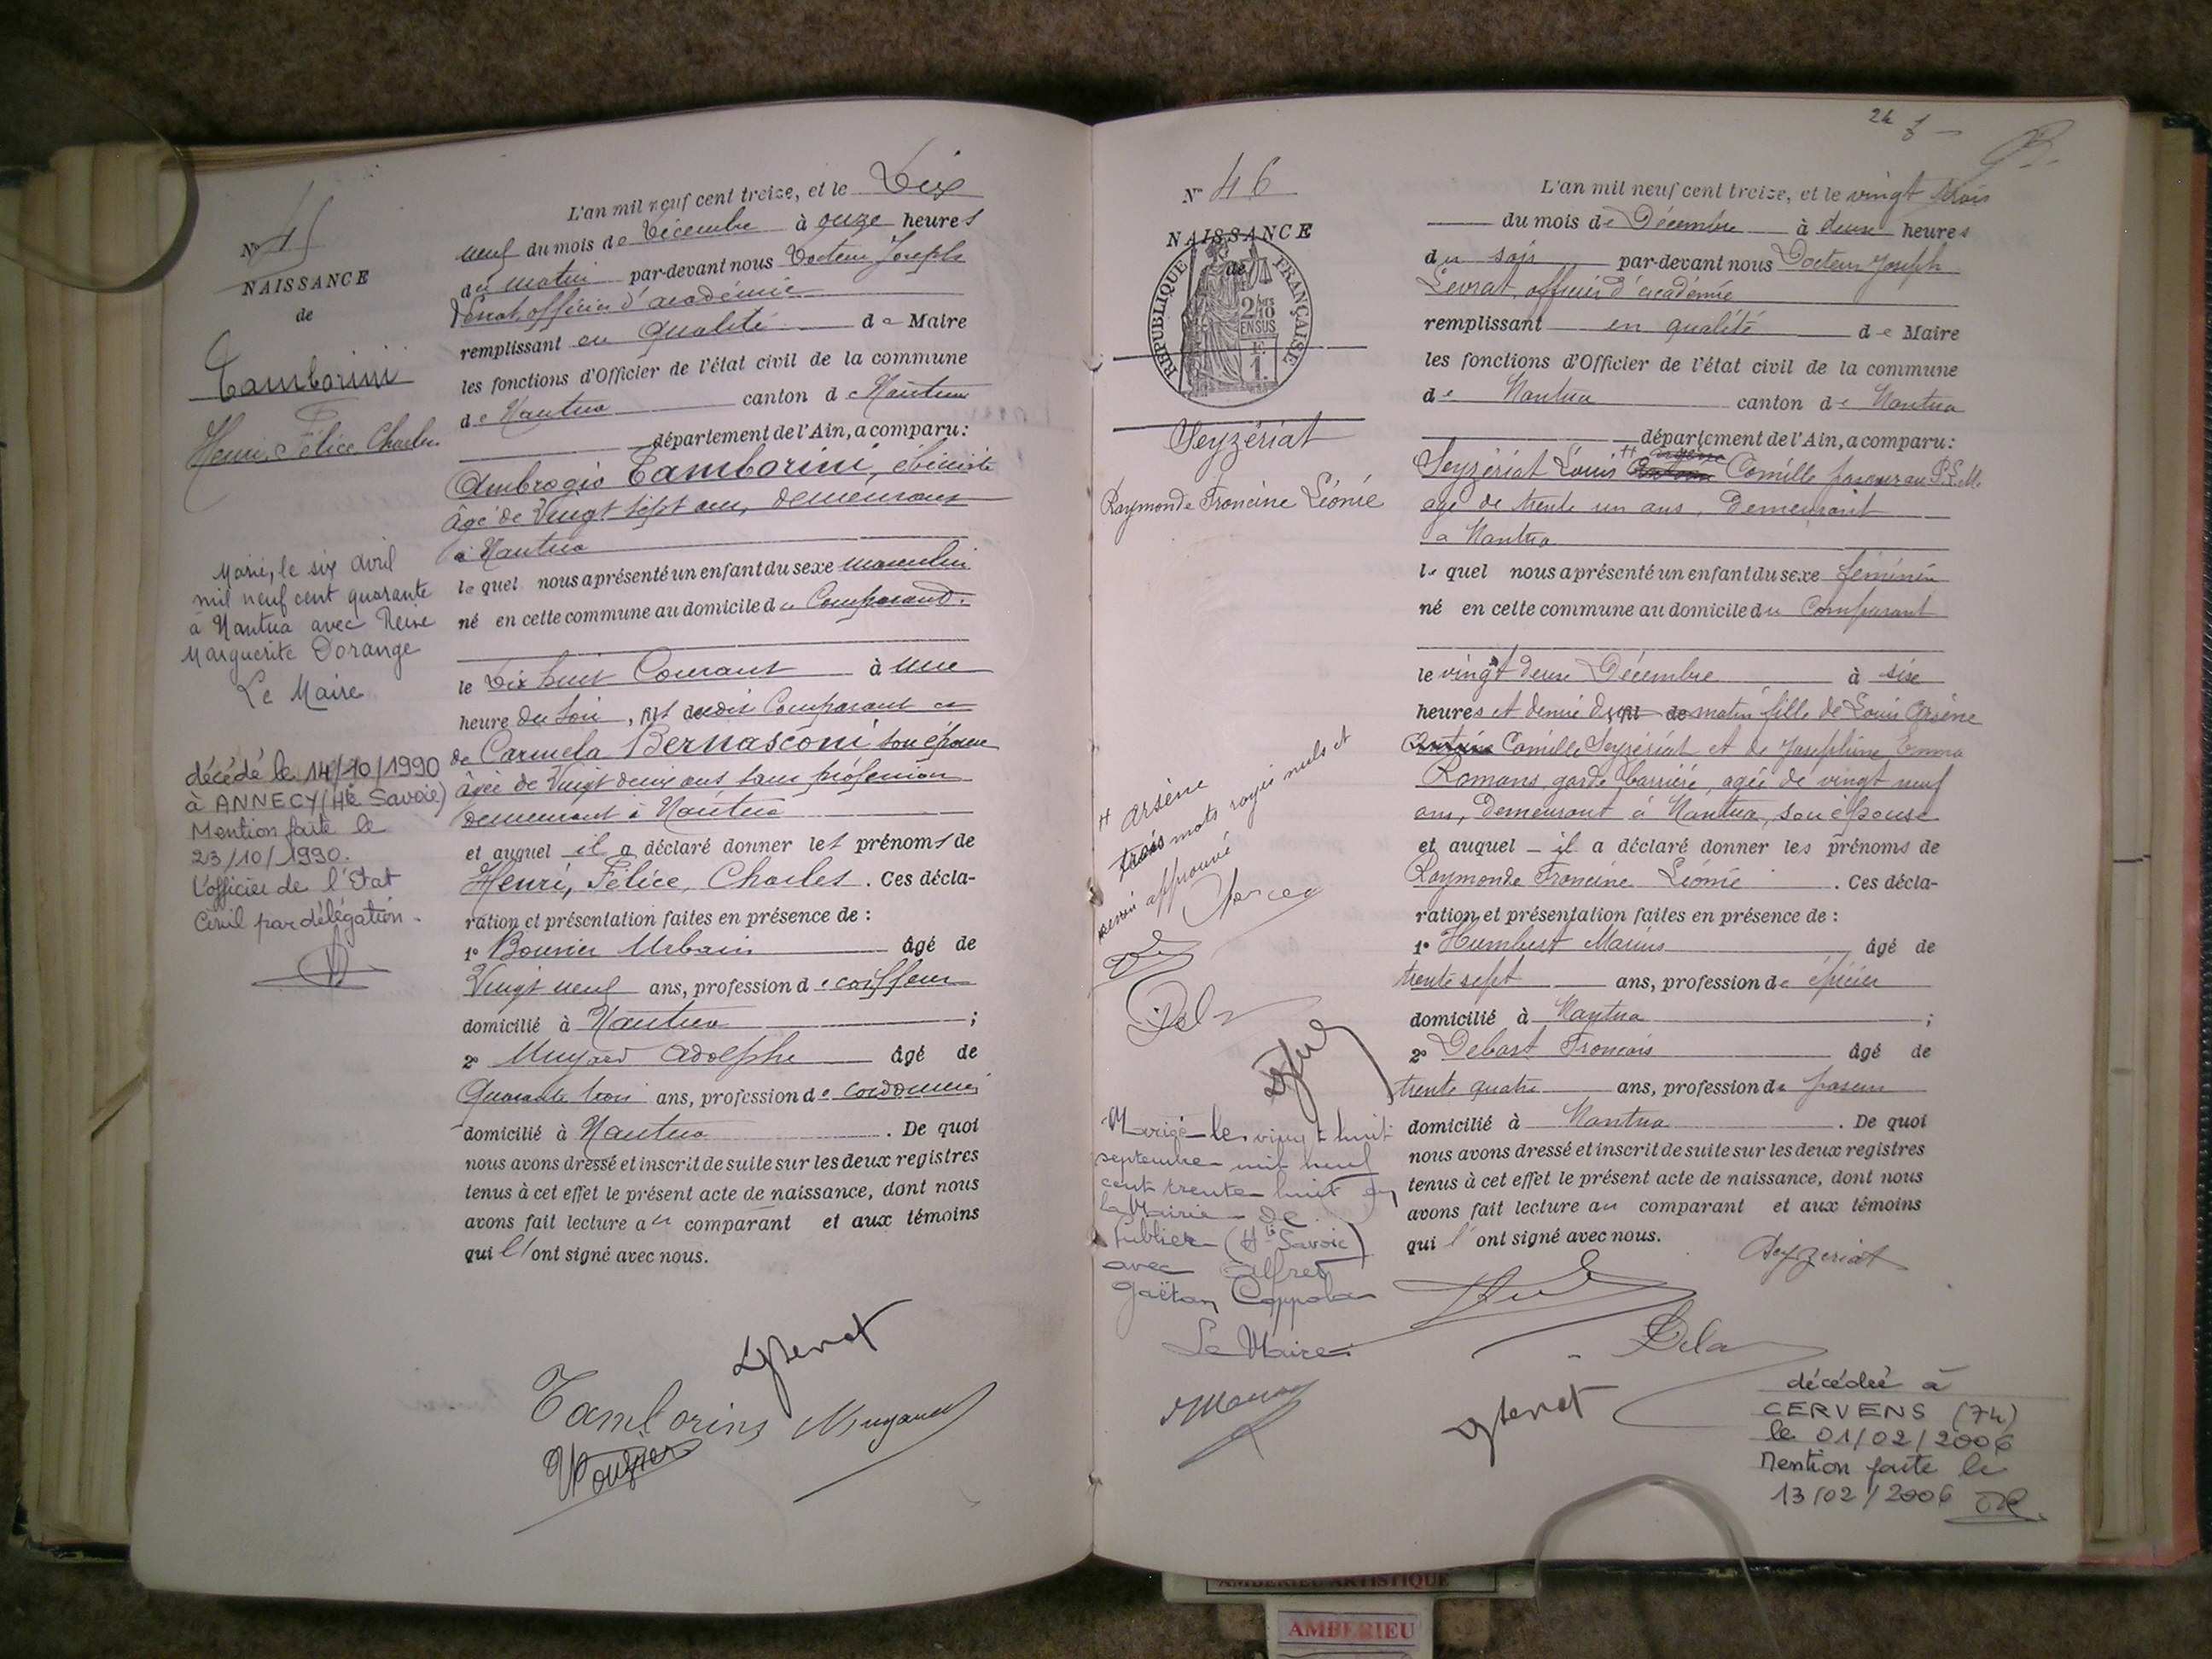 N° 45
NAISSANCE
de
Tamborini
Henri, Félice, Charles
Marié, le six avril
mil neuf cent quarante
à Nantua avec Reine
Marguerite Dorange
Le Maire
décédé le 14/10/1990
à ANNECY (Hte Savoie)
Mention faite le
23/10/1990.
L'officier de l'Etat
Civil par délégation.
L'an mil neuf cent treize, et le Dix
neuf du mois de Décembre à onze heures
du matin par-devant nous Docteur Joseph
officier d'académie
remplissant en qualité de Maire
les fonctions d'Officier de l'état civil de la commune
de Nantua canton de Nantua
département de l'Ain, a comparu:
Ambrogio Tamborini, ébéniste
âgé de Vingt sept ans, demeurant
à Nantua
lequel nous a présenté un enfant du sexe masculin
né en cette commune au domicile du Comparant.
le Dix huit Courant à une
heure du soir, fils dudit Comparant et
de Carmela Bernasconi son épouse
âgée de Vingt deux ans sans profession
demeurant à Nantua
et auquel il a déclaré donner les prénoms de
Henri, Félice, Charles. Ces décla-
ration et présentation faites en présence de :
1° Bouvier Urbain âgé de
Vingt neuf ans, profession de coiffeur
domicilié à Nantua ;
2° Muyard Adolphe âgé de
Quarante trois ans, profession de cordonnier
domicilié à Nantua. De quoi
nous avons dressé et inscrit de suite sur les deux registres
tenus à cet effet le présent acte de naissance, dont nous
avons fait lecture au comparant et aux témoins
qui l'ont signé avec nous.
Tamborini Muyard
24
N° 46
NAISSANCE
de
REPUBLIQUE FRANÇAISE
2/10
EN SUS
F.
1.
Seyzériat
Raymonde Francine Léonie
H Arsène
trois mots rayés nuls et
renvoi approuvé
Marigé le vingt huit
septembre mil neuf
cent trente huit en
la Mairie de
Publier (Hte Savoie)
avec Alfred
Gaëtan Coppola
Le Maire
L'an mil neuf cent treize, et le vingt trois
du mois de Décembre à deux heures
du soir par-devant nous Docteur Joseph
officier d'académie
remplissant en qualité de Maire
les fonctions d'Officier de l'état civil de la commune
de Nantua canton de Nantua
département de l'Ain, a comparu:
Seyzériat Louis H Camille poseur au P.L.M.
agé de trente un ans, Demeurant
a Nantua
lequel nous a présenté un enfant du sexe féminin
né en cette commune au domicile du Comparant
le vingt deux Décembre à six
heures et demie du fil de matin fille de Louis Arsène
Camille Seyzériat et de Joséphine Emma
Romans garde barrière, agée de vingt neuf
ans, Demeurant à Nantua, son épouse
et auquel il a déclaré donner les prénoms de
Raymonde Francine Léonie. Ces décla-
ration et présentation faites en présence de :
1° Humbert Marius âgé de
trente sept ans, profession de épicier
domicilié à Nantua ;
2° Debast Francois âgé de
trente quatre ans, profession de poseur
domicilié à Nantua. De quoi
nous avons dressé et inscrit de suite sur les deux registres
tenus à cet effet le présent acte de naissance, dont nous
avons fait lecture au comparant et aux témoins
qui l'ont signé avec nous.
Seyzeriat
décédée à
CERVENS (74)
le 01/02/2006
Mention faite le
13/02/2006
AMBERIEU ARTISTIQUE
AMBERIEU